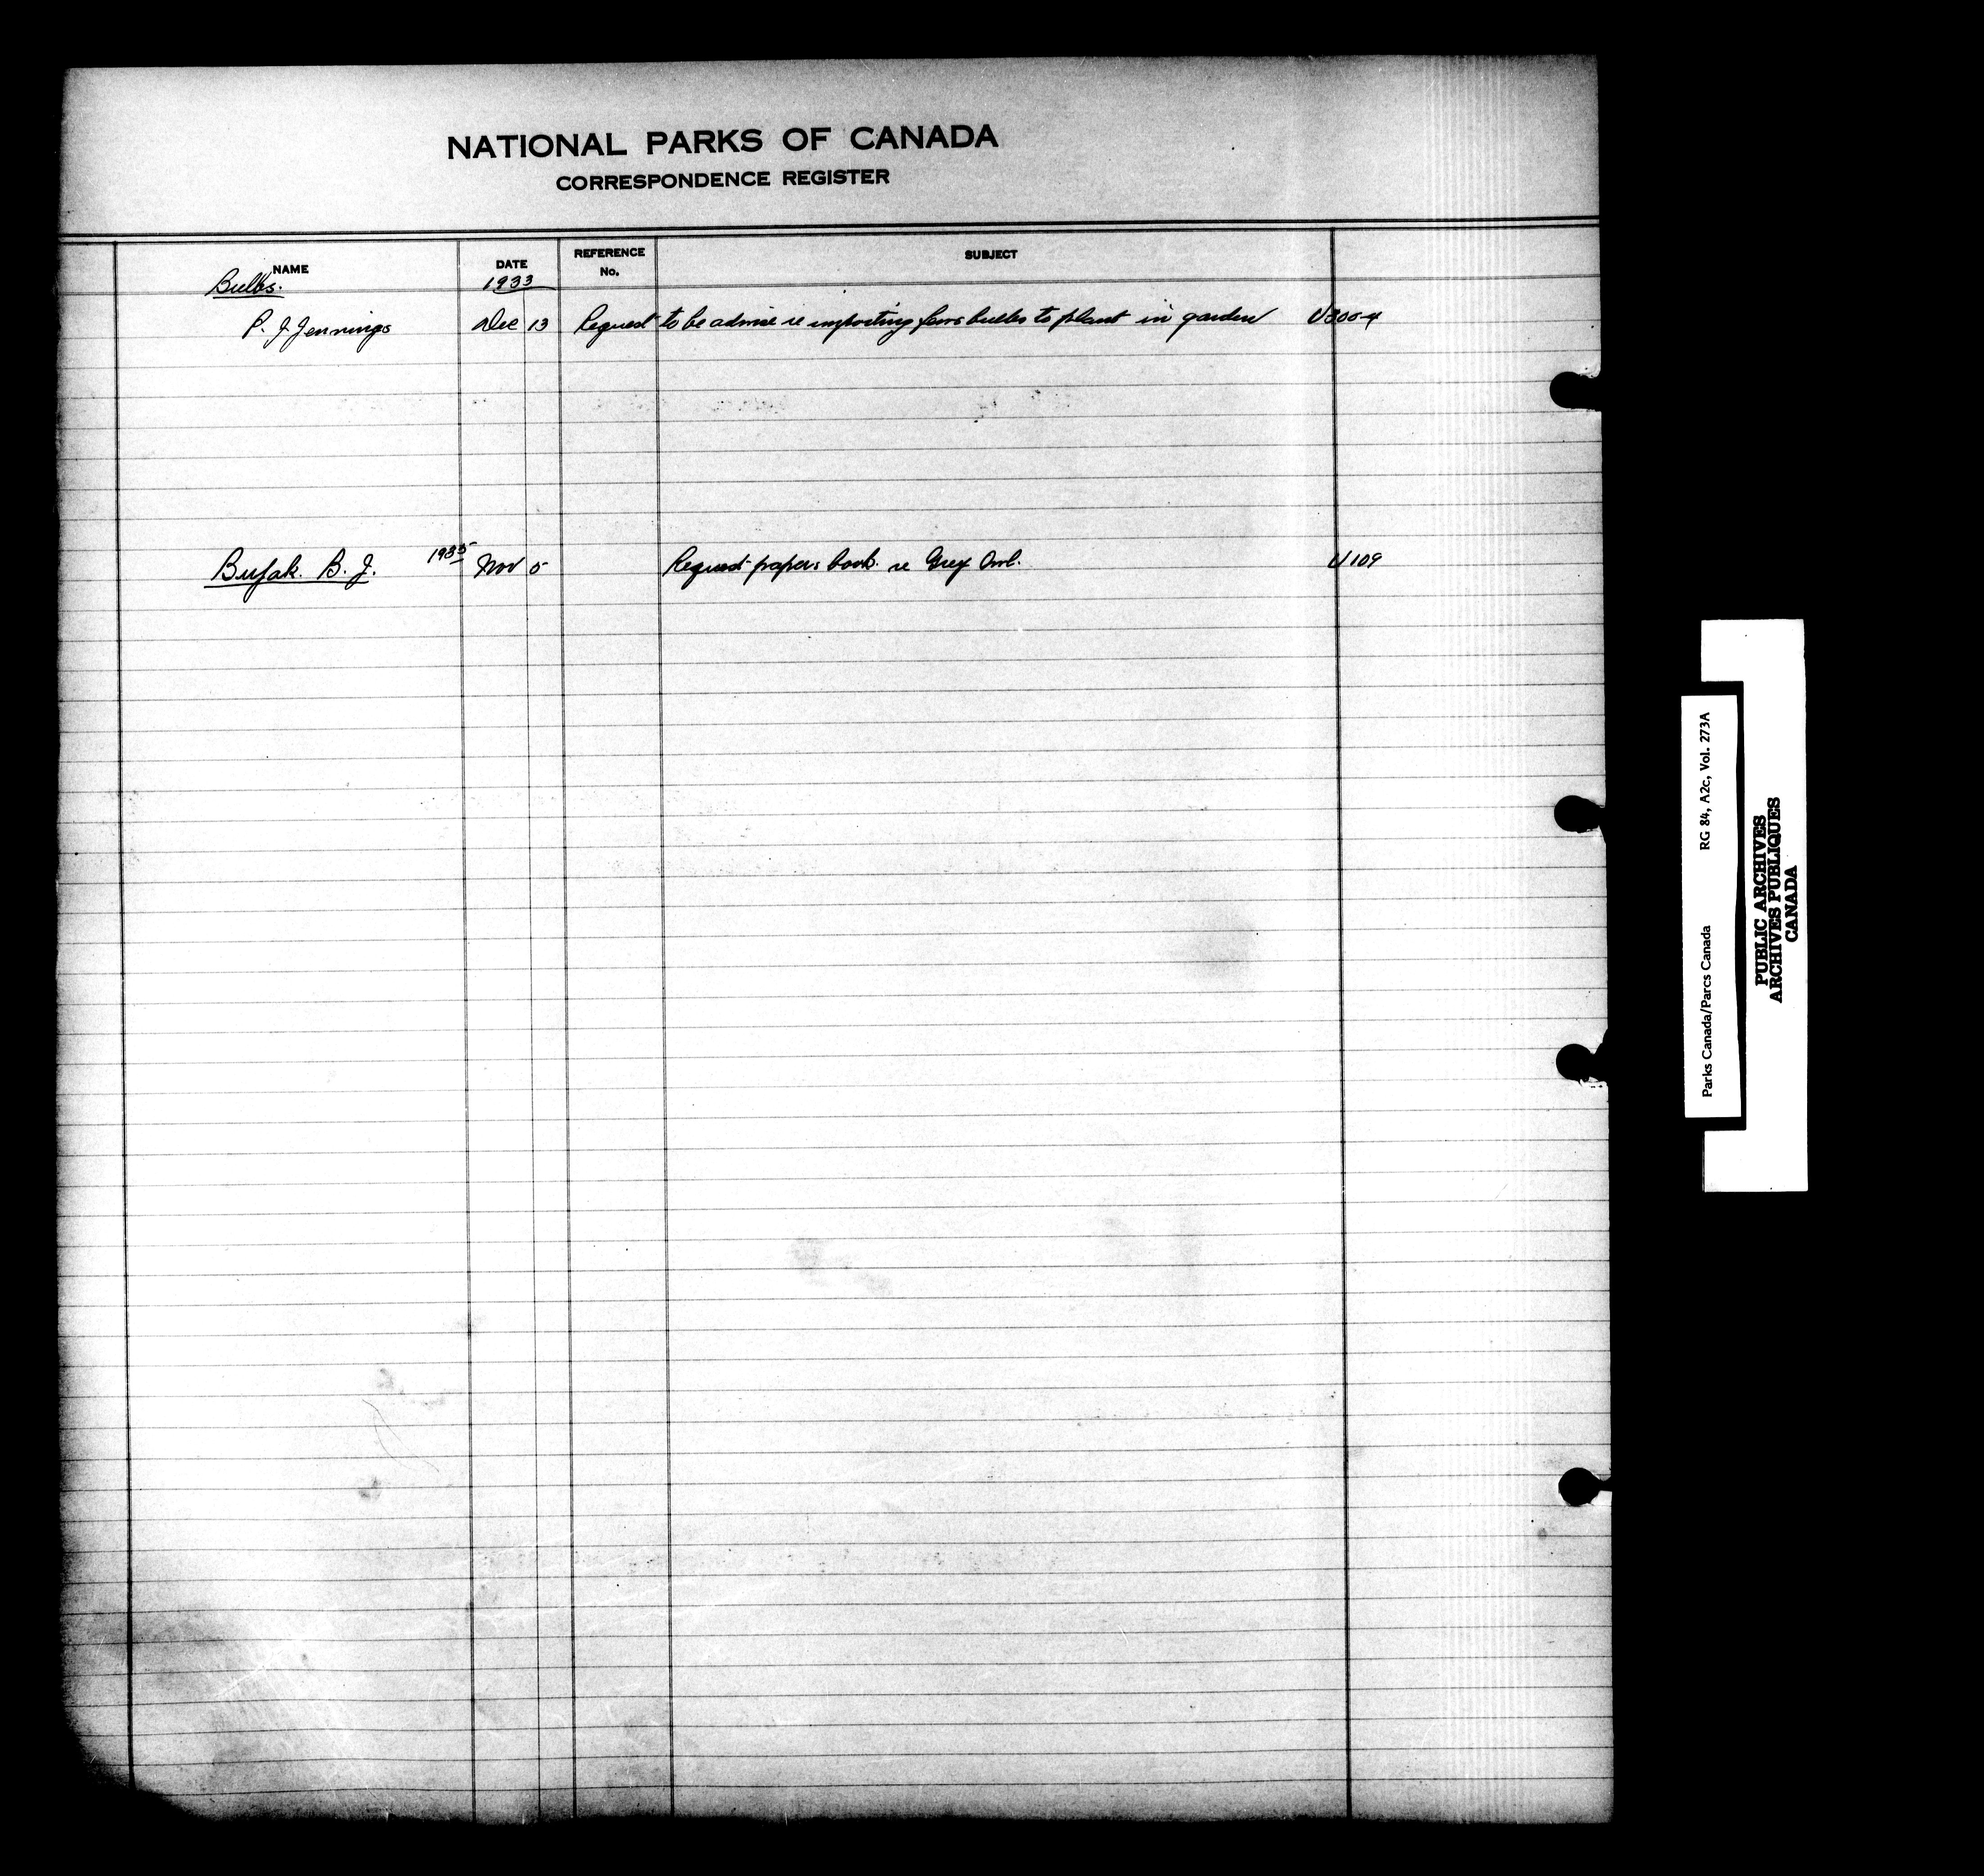 NATIONAL PARKS OF CANADA
CORRESPONDENCE REGISTER
NAME DATE REFERENCE No. SUBJECT
Bulbs. 1933
P. J. Jennings Dec 13 Request to be advise re importing few bulbs to plant in garden U300-4
B. J. 1935 Nov 5 Request papers book. re Grey Owl. U109
Parks Canada/Parcs Canada RG 84, A2c, Vol. 273A
PUBLIC ARCHIVES
ARCHIVES PUBLIQUES
CANADA